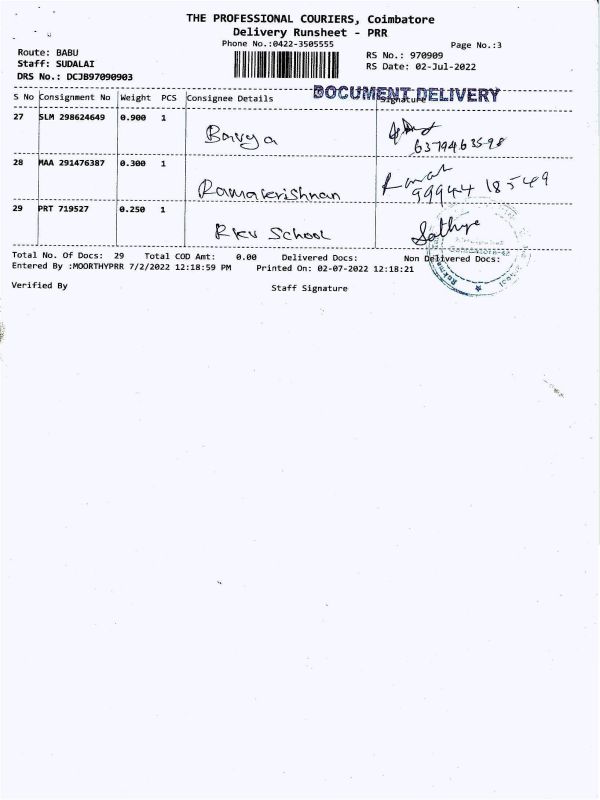 THE PROFESSIONAL COURIERS, Coimbatore
Delivery Runsheet - PRR
Phone No.:0422-3505555
Page No.:3
Route: BABU
RS No.: 970909
Staff: SUDALAI
RS Date: 02-Jul-2022
DRS No.: DCJB97090903
DOCUMENT DELIVERY
S No Consignment No Weight PCS Consignee Details Signature
27 SLM 298624649 0.900 1 Bavya
28 MAA 291476387 0.300 1 Ramakrishnan
99944 18549
29 PRT 719527 0.250 1 RKV School Sathya
Total No. Of Docs: 29 Total COD Amt: 0.00 Delivered Docs: Non Delivered Docs:
Entered By :MOORTHYPRR 7/2/2022 12:18:59 PM Printed On: 02-07-2022 12:18:21
Verified By Staff Signature